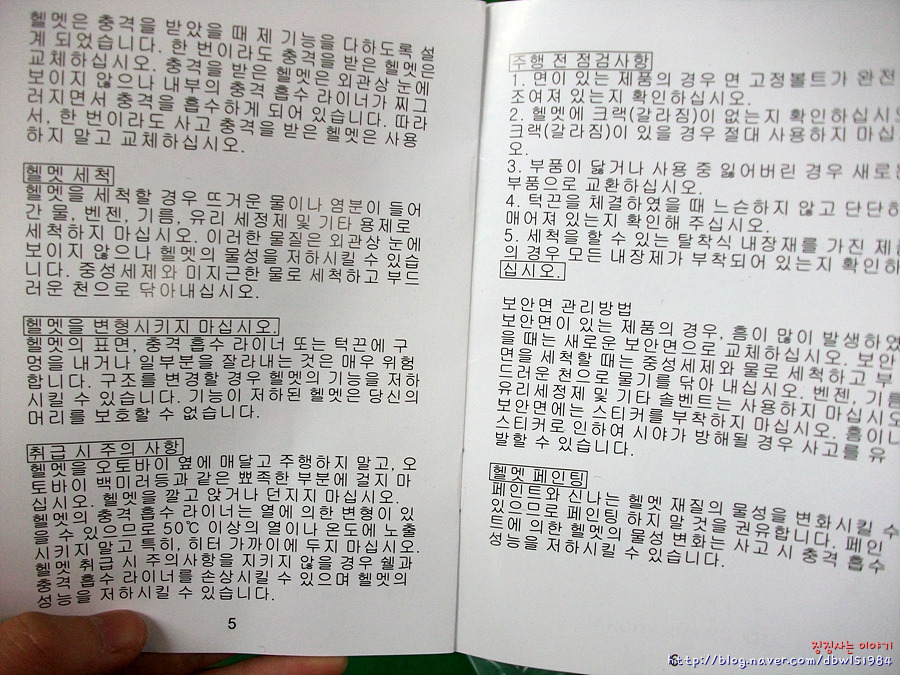 헬멧은 충격을 받았을 때 제 기능을 다하도록 설
계 되었습니다. 한 번이라도 충격을 받은 헬멧은
교체하십시오. 충격을 받은 헬멧은 외관상 눈에
보이지 않으나 내부의 충격 흡수 라이너가 찌그
러지면서 충격을 흡수하게 되어 있습니다. 따라
서, 한 번이라도 사고 충격을 받은 헬멧은 사용
하지 말고 교체하십시오.
헬멧 세척
헬멧을 세척할 경우 뜨거운 물이나 염분이 들어
간 물, 벤젠, 기름, 유리 세정제 및 기타 용제로
세척하지 마십시오. 이러한 물질은 외관상 눈에
보이지 않으나 헬멧의 물성을 저하시킬 수 있습
니다. 중성세제와 미지근한 물로 세척하고 부드
러운 천으로 닦아내십시오.
헬멧을 변형시키지 마십시오.
헬멧의 표면, 충격 흡수 라이너 또는 턱끈에 구
멍을 내거나 일부분을 잘라내는 것은 매우 위험
합니다. 구조를 변경할 경우 헬멧의 기능을 저하
시킬 수 있습니다. 기능이 저하된 헬멧은 당신의
머리를 보호할 수 없습니다.
취급 시 주의 사항
헬멧을 오토바이 옆에 매달고 주행하지 말고, 오
토바이 백미러등과 같은 뾰족한 부분에 걸지 마
십시오. 헬멧을 깔고 앉거나 던지지 마십시오.
헬멧의 충격 흡수 라이너는 열에 의한 변형이 있
을 수 있으므로 50℃ 이상의 열이나 온도에 노출
시키지 말고 특히, 히터 가까이에 두지 마십시오.
헬멧 취급 시 주의사항을 지키지 않을 경우 쉘과
충격 흡수 라이너를 손상시킬 수 있으며 헬멧의
성능을 저하시킬 수 있습니다.
5
주행 전 점검사항
1. 면이 있는 제품의 경우 면 고정볼트가 완전
조여져 있는지 확인하십시오.
2. 헬멧에 크랙(갈라짐)이 없는지 확인하십시오
크랙(갈라짐)이 있을 경우 절대 사용하지 마십
오.
3. 부품이 닳거나 사용 중 잃어버린 경우 새로운
부품으로 교환하십시오.
4. 턱끈을 체결하였을 때 느슨하지 않고 단단히
매어져 있는지 확인해 주십시오.
5. 세척을 할 수 있는 탈착식 내장재를 가진 제품
의 경우 모든 내장제가 부착되어 있는지 확인하
십시오.
보안면 관리방법
보안면이 있는 제품의 경우, 흠이 많이 발생하였
을 때는 새로운 보안면으로 교체하십시오. 보안
면을 세척할 때는 중성세제와 물로 세척하고 부
드러운 천으로 물기를 닦아 내십시오. 벤젠, 기름
유리세정제 및 기타 솔벤트는 사용하지 마십시오
보안면에는 스티커를 부착하지 마십시오. 흠이나
스티커로 인하여 시야가 방해될 경우 사고를 유
발할 수 있습니다.
헬멧 페인팅
페인트와 신나는 헬멧 재질의 물성을 변화시킬 수
있으므로 페인팅 하지 말 것을 권유합니다. 페인
트에 의한 헬멧의 물성 변화는 사고 시 충격 흡수
성능을 저하시킬 수 있습니다.
6
징징사는 이야기
http://blog.naver.com/dbwls1984